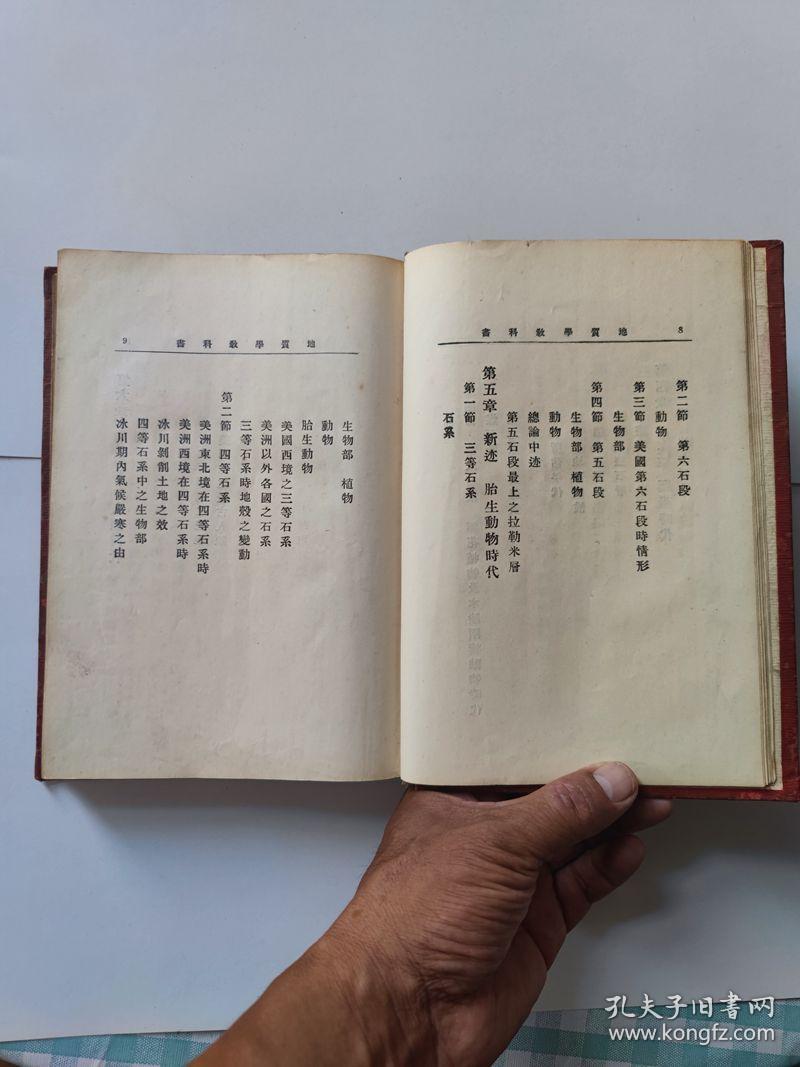 8 地質學教科書
第二節 第六石段
動物
第三節 美國第六石段時情形
生物部
第四節 第五石段
生物部 植物
動物
總論中迹
第五石段最上之拉勒米層
第五章 新迹 胎生動物時代
第一節 三等石系
石系
地質學教科書 9
生物部 植物
動物
胎生動物
美國西境之三等石系
美洲以外各國之石系
三等石系時地殼之變動
第二節 四等石系
美洲東北境在四等石系時
美洲西境在四等石系時
冰川剝削土地之效
四等石系中之生物部
冰川期內氣候嚴寒之由
孔夫子旧书网
www.kongfz.com